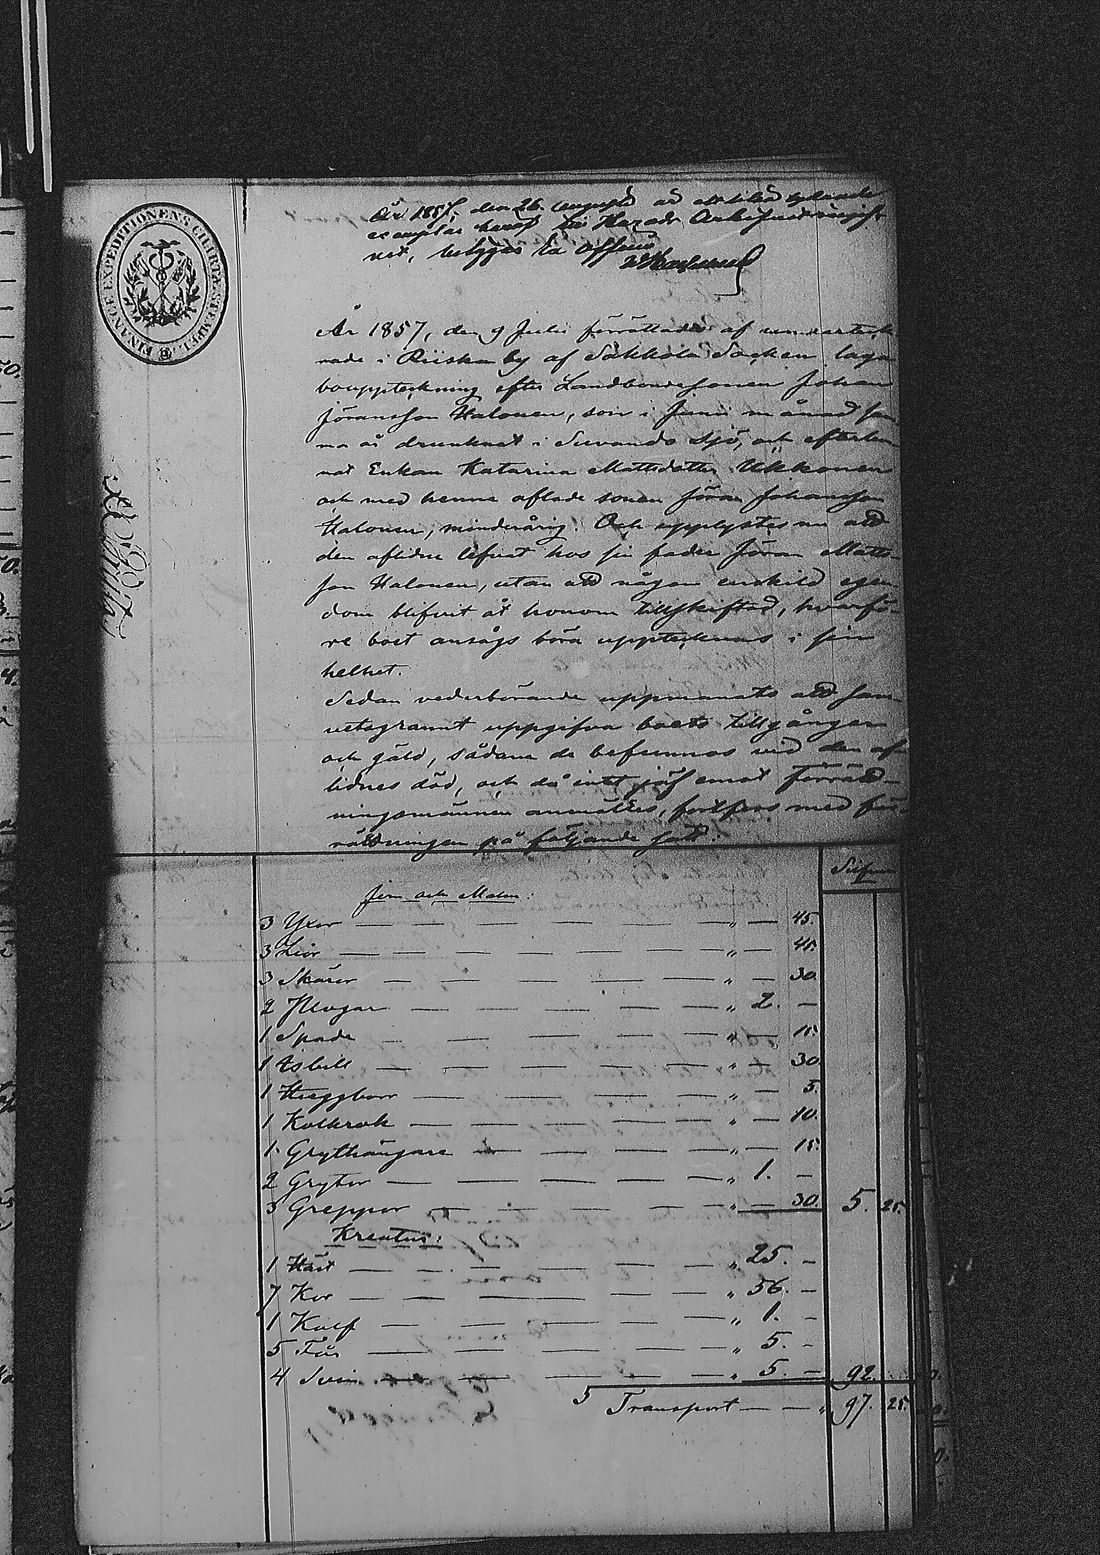 FINANCE EXPEDITIONENS CHARTÆ STEMPEL
År 1857, den 26 Augusti ett
exemplar häraf
net, betygar Ex officio
År 1857, den 9 Julii förrättades af underteck-
nade i Riiska by af Sakkola Socken laga
bouppteckning efter Landbondesonen Johan
Jöransson Halonen, som i Junii månad sam-
ma år drunknat i Suvando sjö, och efterlem-
nat Enkan Katarina Mattsdotter Ukkonen
och med henne aflade sonen Jöran Johansson
Halonen, minderårig. Och upplystes nu att
den aflidne lefvat hos sin fader Jöran Matts-
son Halonen, utan att någon enskild egen-
dom blifvit åt honom tillskiftad, hvarfö-
re boet ansågs böra upptecknas i sin
helhet.
Sedan vederbörande uppmanats att sam-
vetsgrannt uppgifva boets tillgångar
och gäld, sådana de befunnos vid den af-
lidnes död, och då intet jäf emot förrätt-
ningsmännen anmältes, fortfors med för-
rättningen på följande sätt:
Silfver
Jern och Malm:
3 Yxor — — — " — 45.
3 Liar — — — " — 45.
3 Skäror — — — " — 30.
2 Plogar — — — " 2. —
1 Spade — — — " — 15.
1 Isbill — — — " — 30.
1 — — — " — 5.
1 Kolkrok — — — " — 10.
1 Grythängare — — — " — 15.
2 Grytor — — — " 1. —
3 Greppor — — — " — 30. 5. 25.
Kreatur:
1 Häst — — — " 25. —
7 Kor — — — " 56. —
1 Kalf — — — " 1. —
5 Får — — — " 5. —
4 Svin — — — " 5. — 92.
Transport — — " 97. 25.